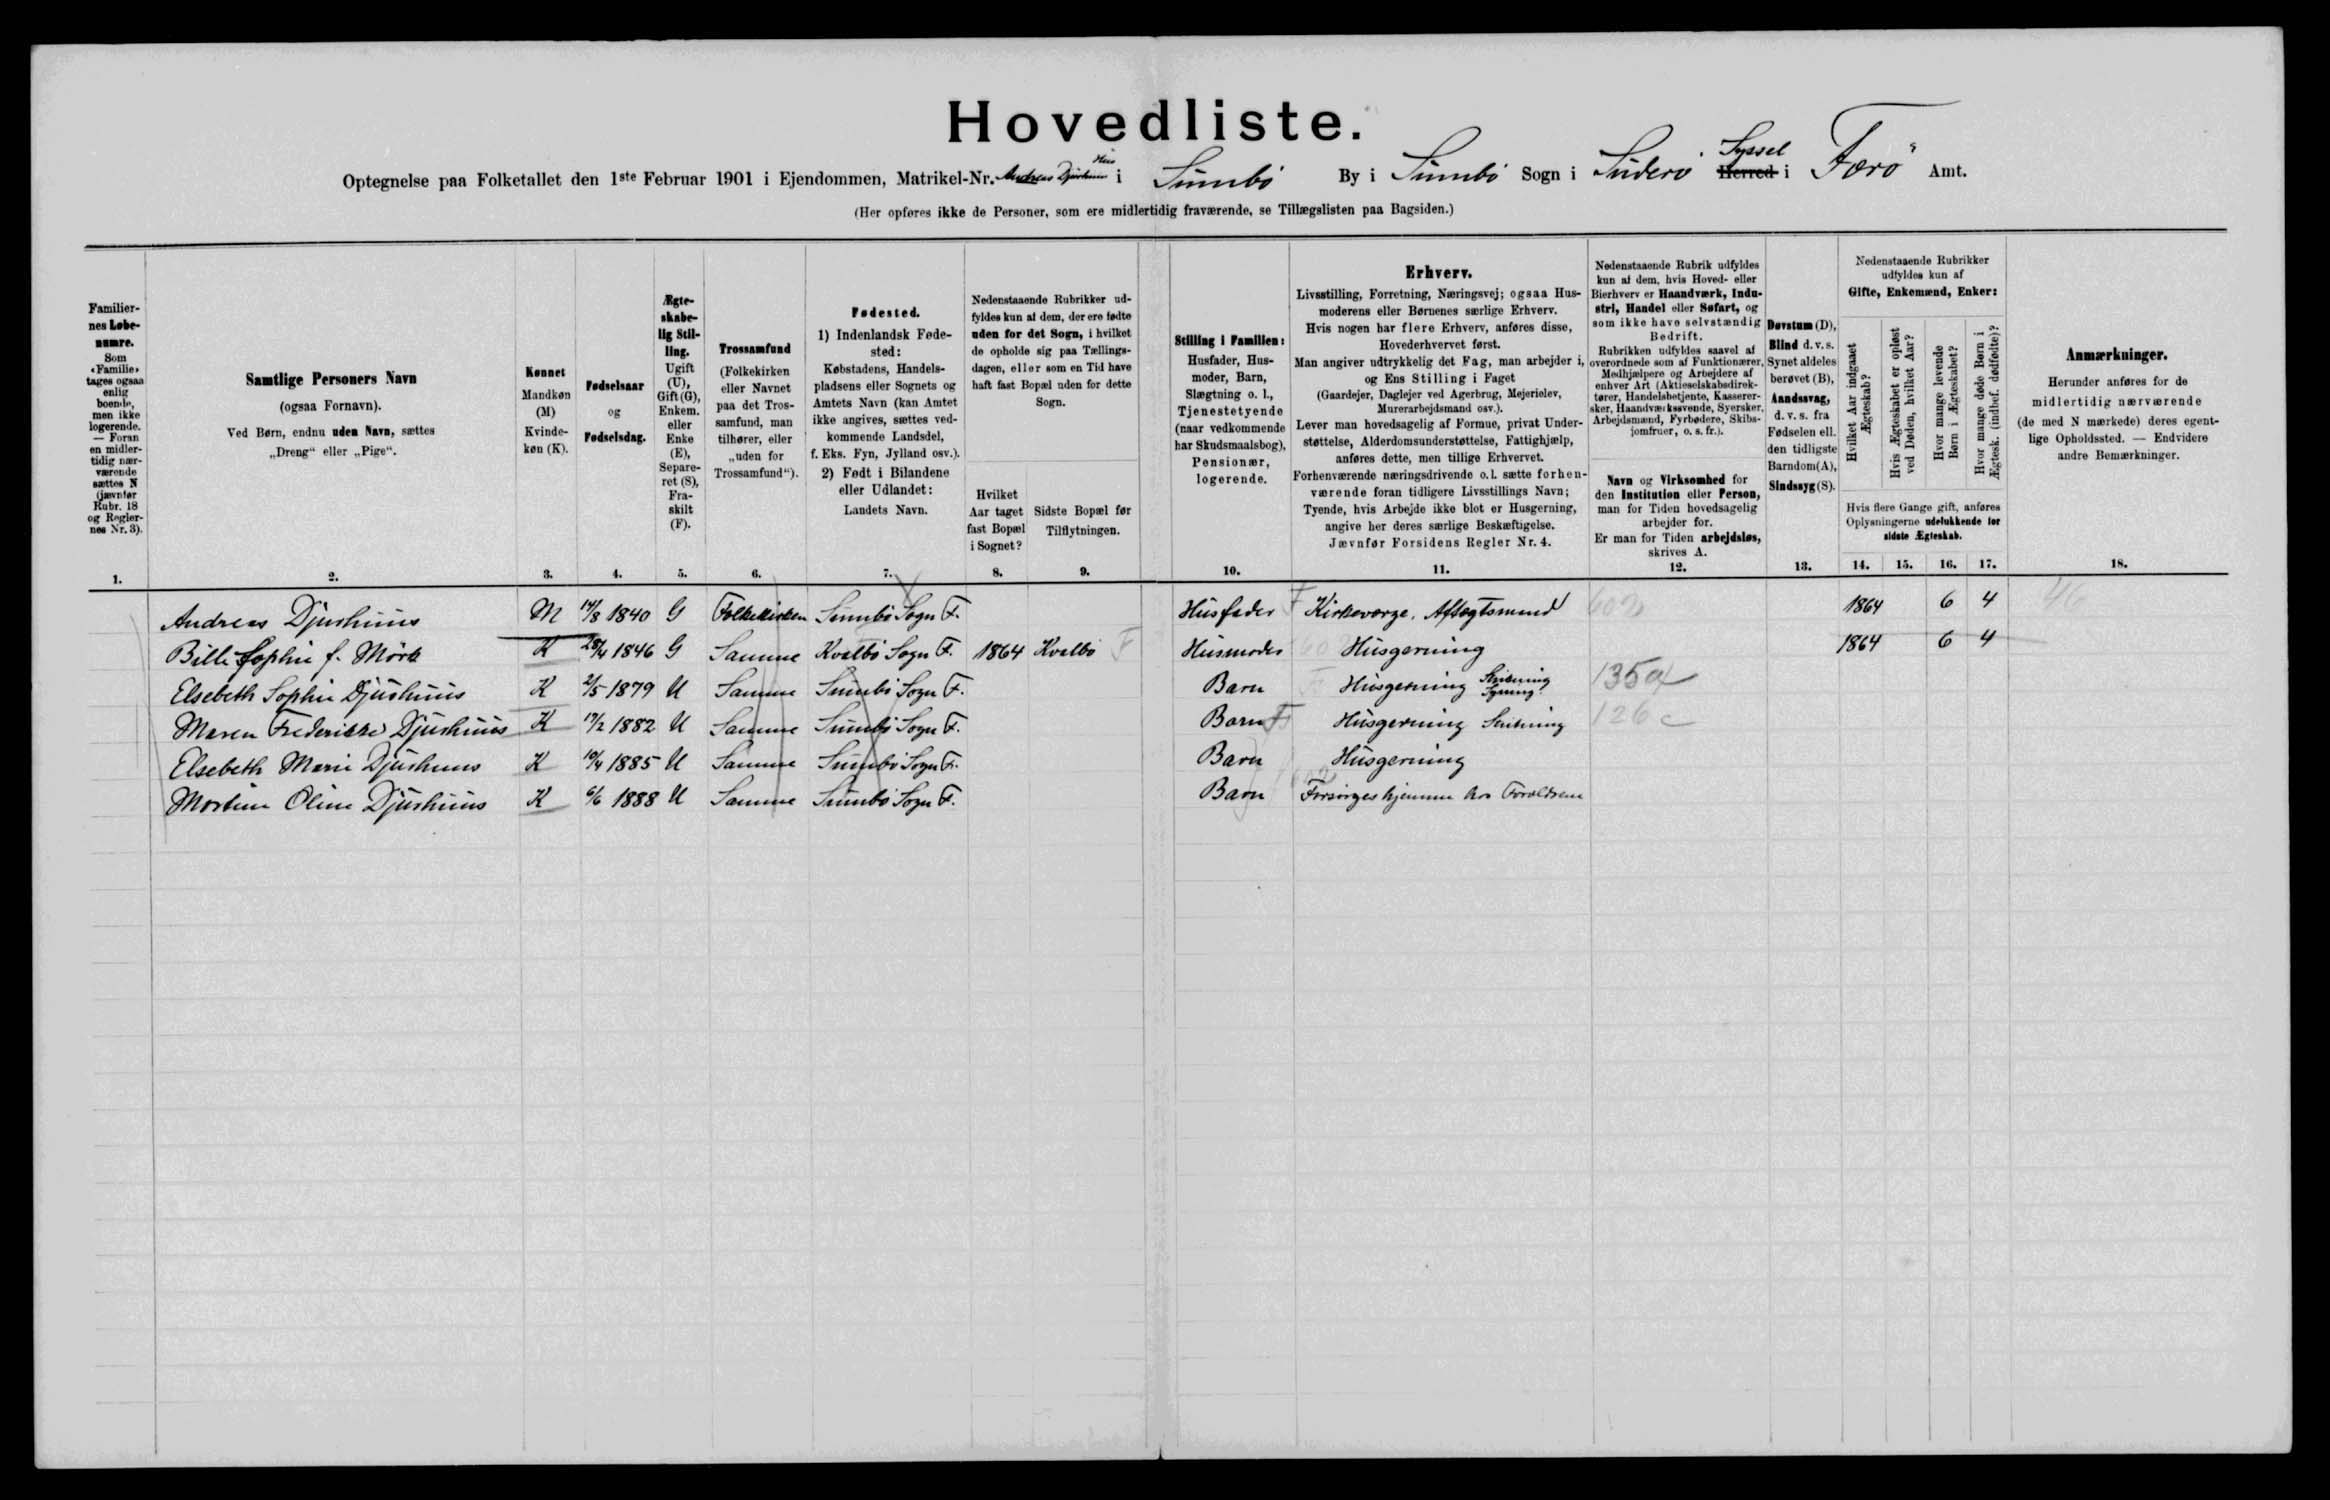 Hovedliste.
Optegnelse paa Folketallet den 1ste Februar 1901 i Ejendommen, Matrikel-Nr. Andreas Djurhuus Hus i Sumbø By i Sumbø Sogn i Suderø Herred Syssel i Færø Amt.
(Her opføres ikke de Personer, som ere midlertidig fraværende, se Tillægslisten paa Bagsiden.)
Familiernes Løbenumre. Som «Familie» tages ogsaa enlig boende, men ikke logerende. — Foran en midlertidig nærværende sættes N (jævnfør Rubr. 18 og Reglernes Nr. 3).
Samtlige Personers Navn (ogsaa Fornavn). Ved Børn, endnu uden Navn, sættes „Dreng“ eller „Pige“.
Kønnet Mandkøn (M) Kvindekøn (K).
Fødselsaar og Fødselsdag.
Ægteskabelig Stilling. Ugift (U), Gift (G), Enkem. eller Enke (E), Separeret (S), Fraskilt (F).
Trossamfund (Folkekirken eller Navnet paa det Trossamfund, man tilhører, eller „uden for Trossamfund“).
Fødested. 1) Indenlandsk Fødested: Købstadens, Handelspladsens eller Sognets og Amtets Navn (kan Amtet ikke angives, sættes vedkommende Landsdel, f. Eks. Fyn, Jylland osv.). 2) Født i Bilandene eller Udlandet: Landets Navn.
Nedenstaaende Rubrikker udfyldes kun af dem, der ere fødte uden for det Sogn, i hvilket de opholde sig paa Tællingsdagen, eller som en Tid have haft fast Bopæl uden for dette Sogn.
Hvilket Aar taget fast Bopæl i Sognet?
Sidste Bopæl før Tilflytningen.
Stilling i Familien: Husfader, Husmoder, Barn, Slægtning o. l., Tjenestetyende (naar vedkommende har Skudsmaalsbog), Pensionær, logerende.
Erhverv.
Livsstilling, Forretning, Næringsvej; ogsaa Husmoderens eller Børnenes særlige Erhverv.
Hvis nogen har flere Erhverv, anføres disse, Hovederhvervet først.
Man angiver udtrykkelig det Fag, man arbejder i, og Ens Stilling i Faget
(Gaardejer, Daglejer ved Agerbrug, Mejerielev, Murerarbejdsmand osv.).
Lever man hovedsagelig af Formue, privat Understøttelse, Alderdomsunderstøttelse, Fattighjælp, anføres dette, men tillige Erhvervet.
Forhenværende næringsdrivende o. l. sætte forhenværende foran tidligere Livsstillings Navn;
Tyende, hvis Arbejde ikke blot er Husgerning, angive her deres særlige Beskæftigelse.
Jævnfør Forsidens Regler Nr. 4.
Nedenstaaende Rubrik udfyldes kun af dem, hvis Hoved- eller Bierhverv er Haandværk, Industri, Handel eller Søfart, og som ikke have selvstændig Bedrift.
Rubrikken udfyldes saavel af overordnede som af Funktionærer, Medhjælpere og Arbejdere af enhver Art (Aktieselskabsdirektører, Handelsbetjente, Kasserersker, Haandværkssvende, Syersker, Arbejdsmænd, Fyrbødere, Skibsjomfruer, o. s. fr.).
Navn og Virksomhed for den Institution eller Person, man for Tiden hovedsagelig arbejder for.
Er man for Tiden arbejdsløs, skrives A.
Døvstum (D), Blind d. v. s. Synet aldeles berøvet (B), Aandssvag, d. v. s. fra Fødselen ell. den tidligste Barndom (A), Sindssyg (S).
Nedenstaaende Rubrikker udfyldes kun af Gifte, Enkemænd, Enker:
Hvilket Aar indgaaet Ægteskab?
Hvis Ægteskabet er opløst ved Døden, hvilket Aar?
Hvor mange levende Børn i Ægteskabet?
Hvor mange døde Børn i Ægtesk. (indbef. dødfødte)?
Hvis flere Gange gift, anføres Oplysningerne udelukkende for sidste Ægteskab.
Anmærkninger.
Herunder anføres for de midlertidig nærværende (de med N mærkede) deres egentlige Opholdssted. — Endvidere andre Bemærkninger.
1. 2. 3. 4. 5. 6. 7. 8. 9. 10. 11. 12. 13. 14. 15. 16. 17. 18.
Andreas Djurhuus M 14/8 1840 G Folkekirken Sumbø Sogn F. Husfader F Kirkeværge. Aftægtsmand 602 1864 6 4 46
Bille Sophie f. Mörk K 28/4 1846 G Samme Kvalbø Sogn F. 1864 Kvalbø F Husmoder 60 Husgerning 1864 6 4
Elsebeth Sophie Djurhuus K 2/5 1879 U Samme Sumbø Sogn F. Barn F Husgerning Strikning Syning. 135a
Maren Frederikke Djurhuus K 17/2 1882 U Samme Sumbø Sogn F. Barn F Husgerning Strikning 126c
Elsebeth Marie Djurhuus K 10/4 1885 U Samme Sumbø Sogn F. Barn Husgerning
Mortine Oline Djurhuus K 6/6 1888 U Samme Sumbø Sogn F. Barn Forsørges hjemme hos Forældrene